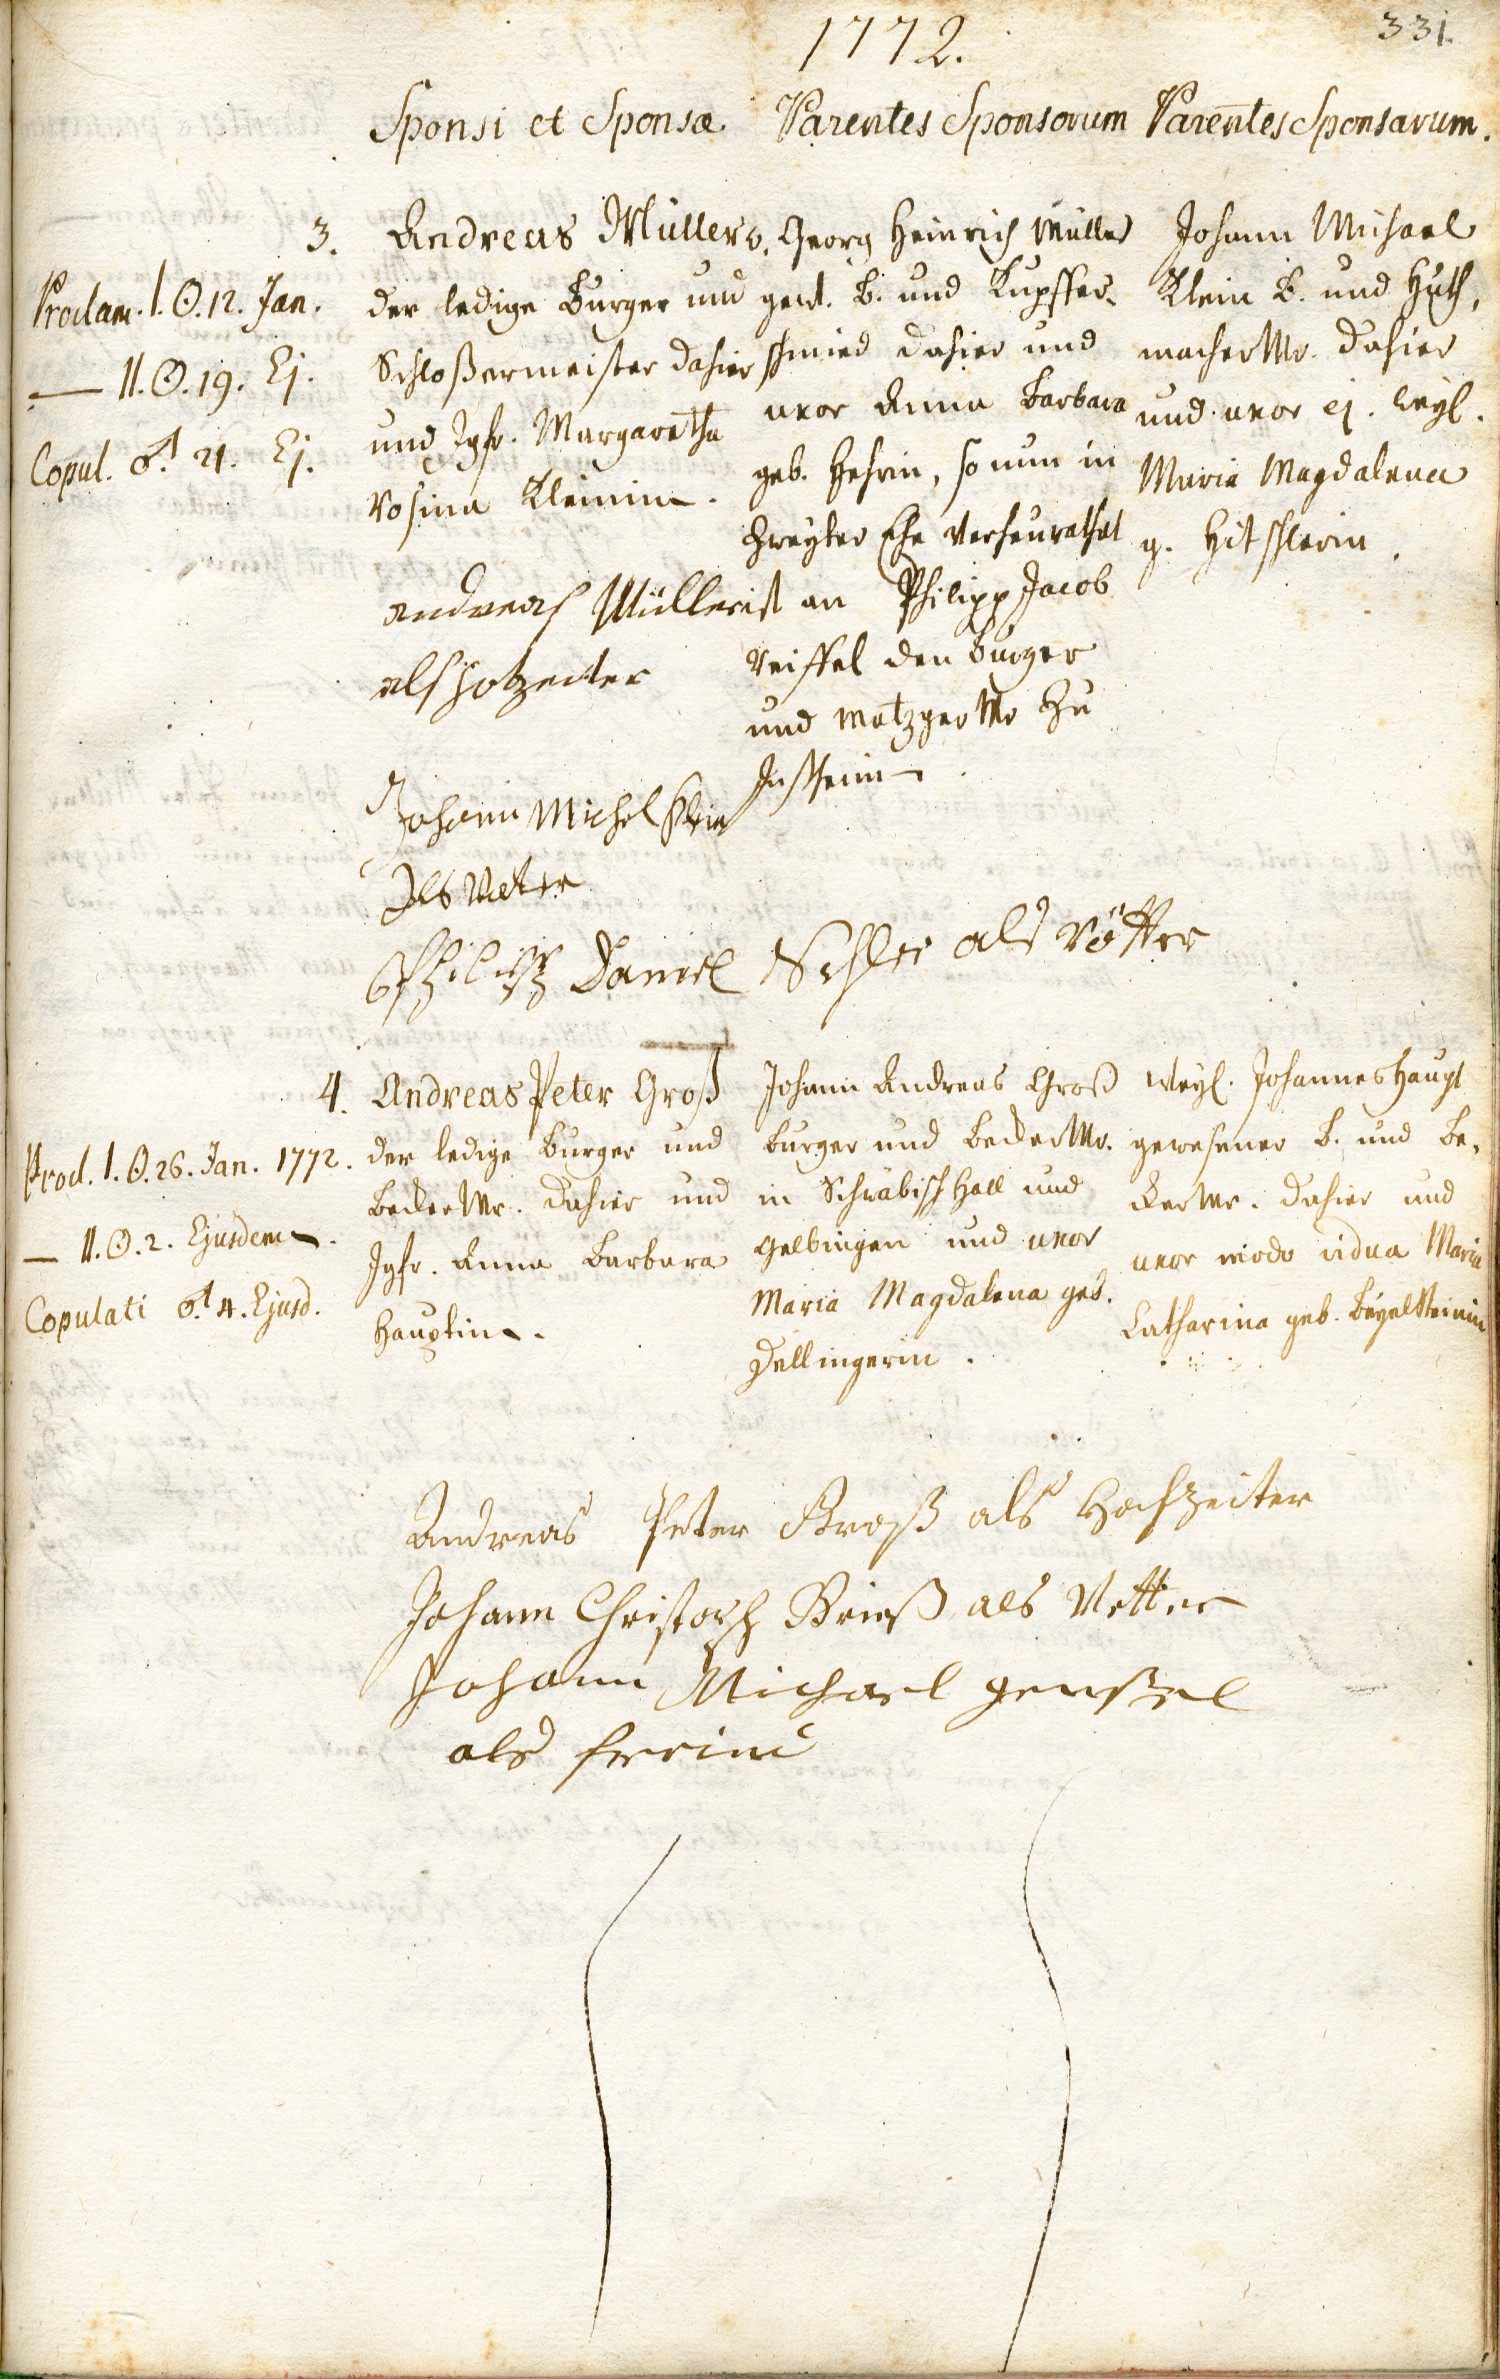 1772.
331.
Sponsi et Sponsæ
Parentes Sponsorum
Parentes Sponsarum.
3.
Proclam. I. ☉. 12. Jan.
— II. ☉. 19. Ej.
Copul. ♂. 21. Ej.
Andreas Müller
der ledige Burger und
Schloßermeister dahier
und Jgfr. Margaretha
Rosina Kleinin.
Georg Heinrich Müller
gew. B. und Kupffer-
schmied dahier und
uxor Anna Barbara
geb. Hehrin, so nun in
zweyter Ehe verheurathet
ist an Philipp Jacob
Reiffel den Burger
und Metzger Mr zu
Insheim.
Johann Michael
Klein B. und Huth,
macher Mr. dahier
und uxor ej. weyl.
Maria Magdalena
g. Hitschlerin.
andreas Müller
als hotzeiter
Johann Michel Klein
Als Vater
Philipp Daniel Schlee als Vötter
4.
Procl. I. ☉. 26. Jan. 1772.
— II. ☉. 2. Ejusdem.
Copulati ♂. 4. Ejusd.
Andreas Peter Groß
der ledige Burger und
Becker Mr. dahier und
Jgfr. Anna Barbara
Hauptin.
Johann Andreas Groß
Burger und Becker Mr.
in Schwäbisch Hall und
Gelbingen und uxor
Maria Magdalena geb.
Dellingerin.
Weyl. Johannes Haupt
gewesener B. und Be,
cker Mr. dahier und
uxor modo vidua Maria
Catharina geb. Beyelsteinin
Andreas Peter Groß als Hochzeiter
Johann Christoph Brieß als Vetter
Johann Michael
als freind